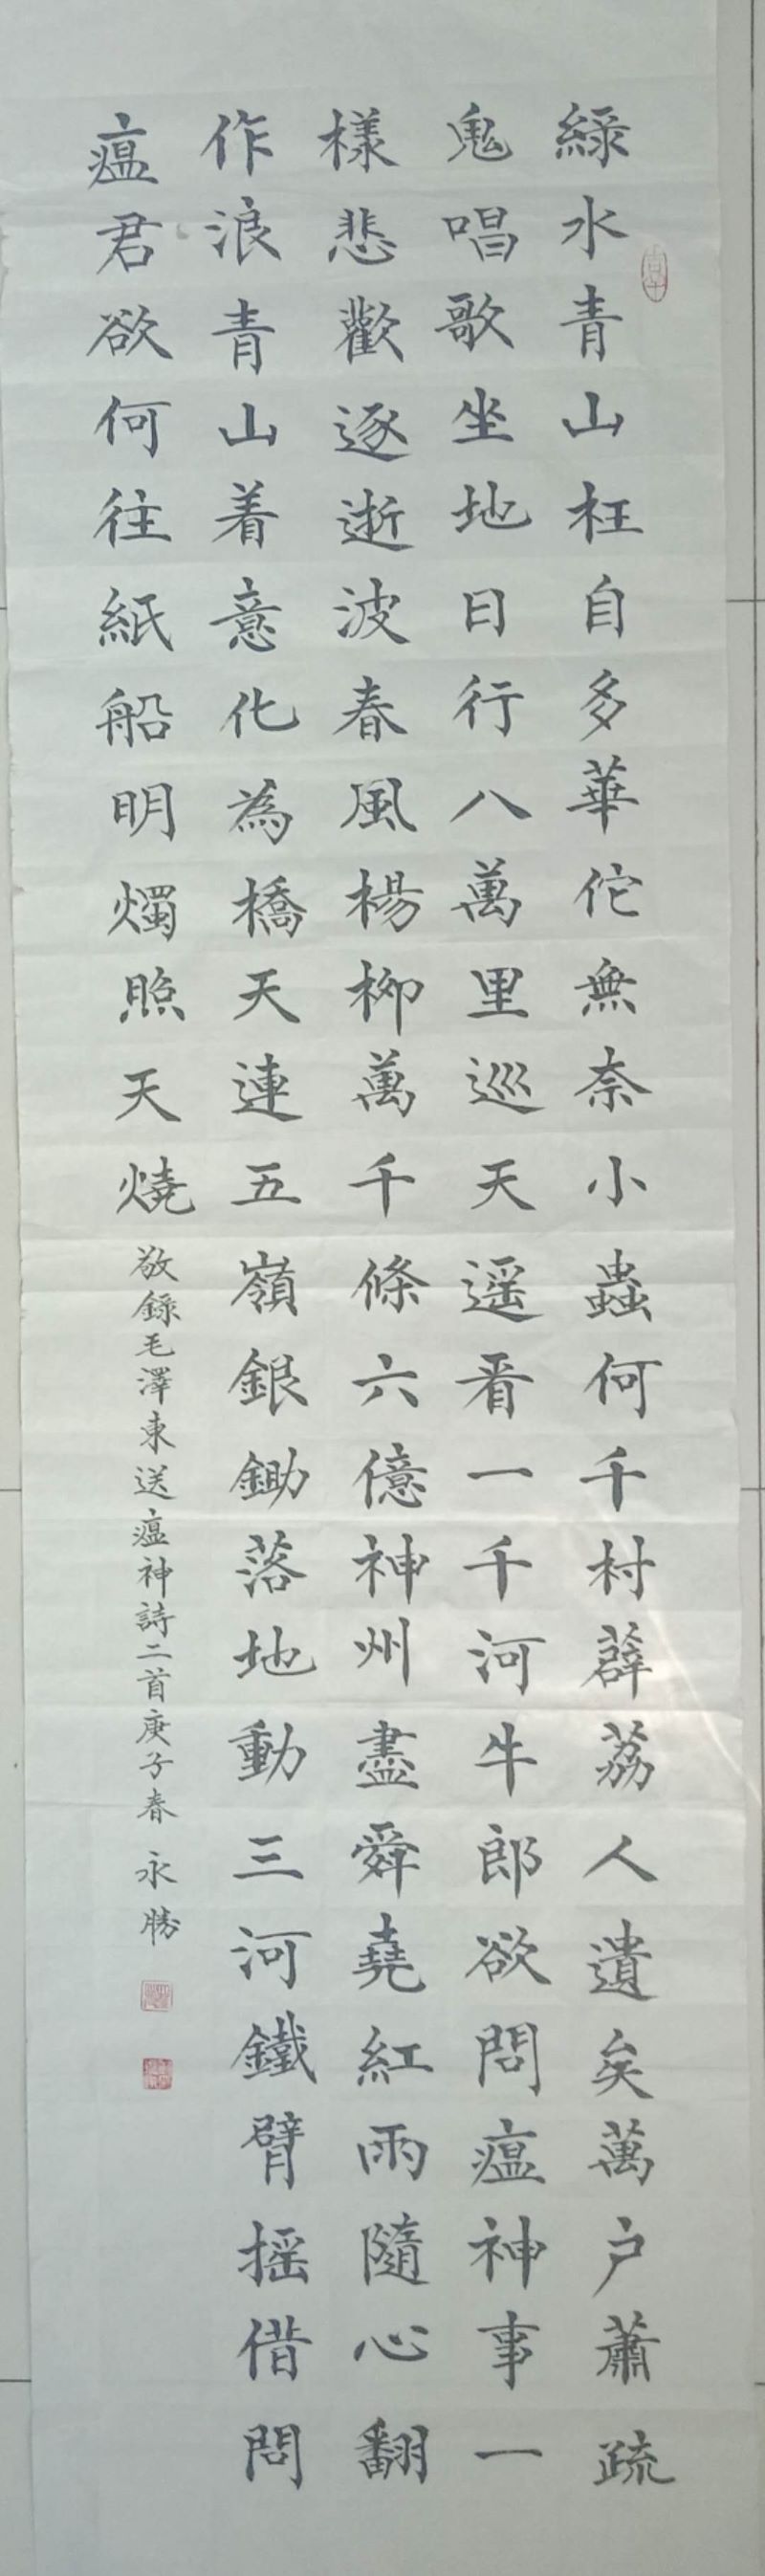 綠水青山枉自多華佗無奈小蟲何千村薜荔人遺矣萬户蕭疏
鬼唱歌坐地日行八萬里巡天遥看一千河牛郎欲問瘟神事一
樣悲歡逐逝波春風楊柳萬千條六億神州盡舜堯紅雨隨心翻
作浪青山着意化為橋天連五嶺銀鋤落地動三河鐵臂摇借問
瘟君欲何往紙船明燭照天燒
敬錄毛澤東送瘟神詩二首庚子春 永勝